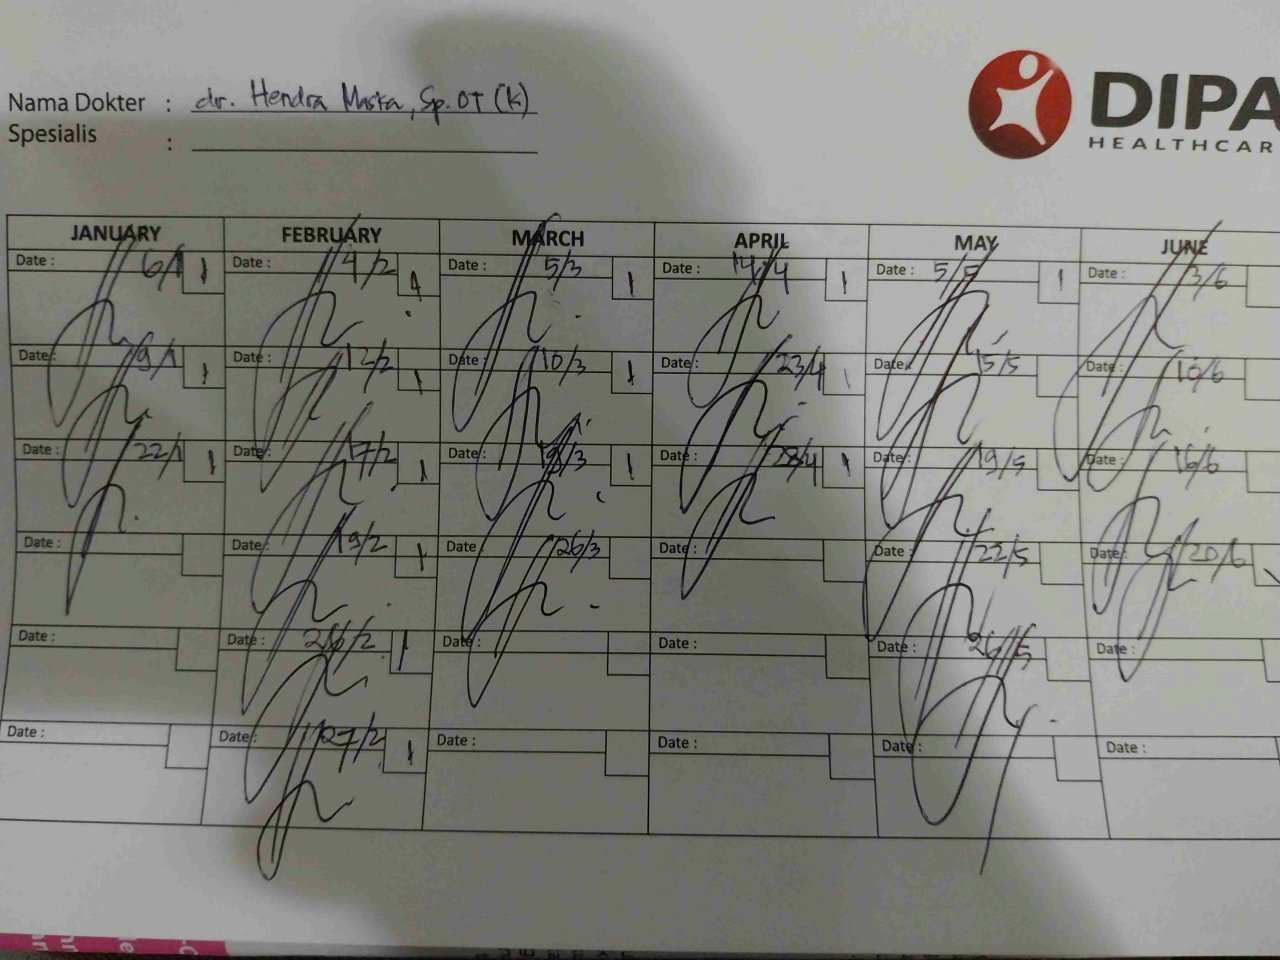 Nama Dokter : dr. Hendra Maska, Sp.OT (K)
Spesialis :
DIPA
HEALTHCAR
JANUARY FEBRUARY MARCH APRIL MAY JUNE
Date : 6/1 1 Date : 4/2 1 Date : 5/3 1 Date : 14/4 1 Date : 5/5 1 Date : 3/6
Date : 9/1 1 Date : 12/2 1 Date : 10/3 1 Date : 23/4 1 Date : 15/5 Date : 10/6
Date : 22/1 1 Date : 17/2 1 Date : 19/3 1 Date : 28/4 1 Date : 19/5 Date : 16/6
Date : Date : 19/2 1 Date : 26/3 Date : Date : 22/5 Date : 20/6
Date : Date : 26/2 1 Date : Date : Date : 26/5 Date :
Date : Date : 27/2 1 Date : Date : Date : Date :